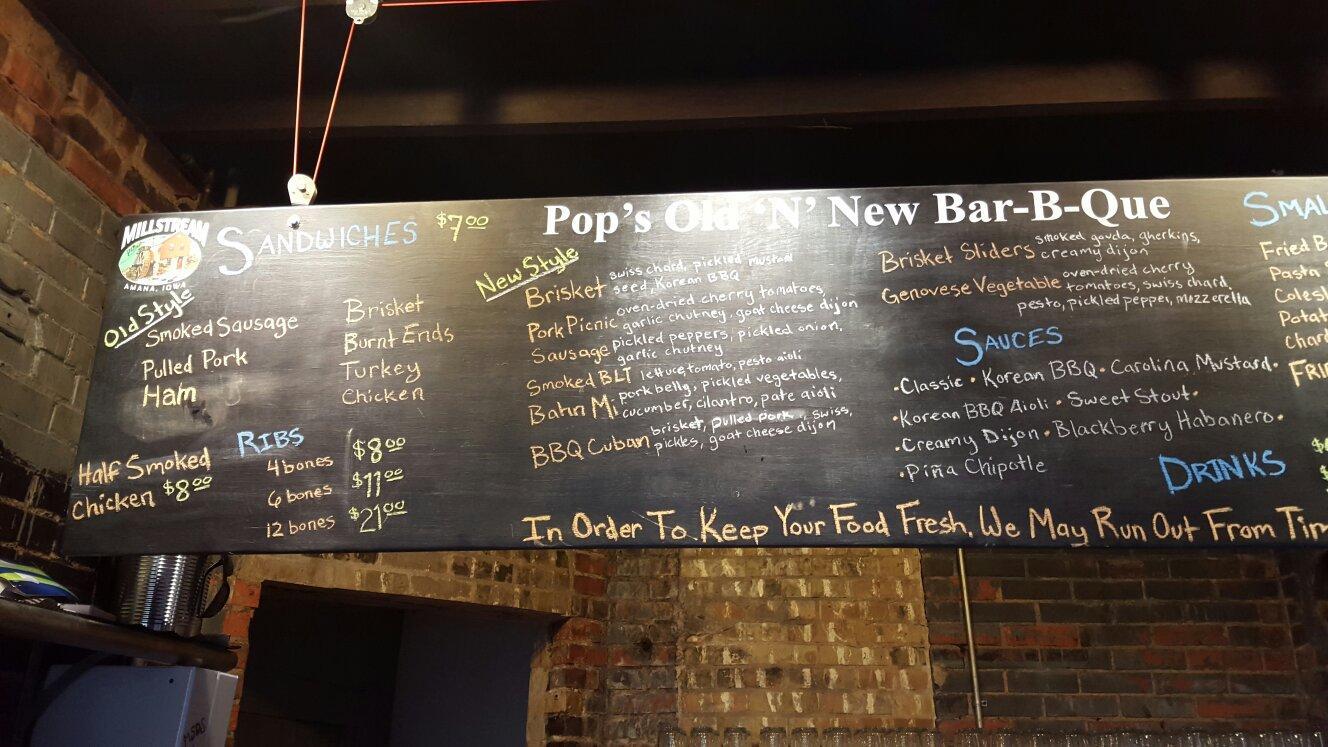 Pop's Old 'N' New Bar-B-Que
MILLSTREAM
AMANA, IOWA
SANDWICHES $7.00
Old Style
Smoked Sausage
Pulled Pork
Ham
Brisket
Burnt Ends
Turkey
Chicken
Half Smoked
Chicken $8.00
RIBS
4 bones $8.00
6 bones $11.00
12 bones $21.00
New Style
Brisket swiss chard, pickled mustard
seed, Korean BBQ
Pork Picnic oven-dried cherry tomatoes,
garlic chutney, goat cheese dijon
Sausage pickled peppers, pickled onion,
garlic chutney
Smoked BLT lettuce, tomato, pesto aioli
Bahn Mi pork belly, pickled vegetables,
cucumber, cilantro, pate aioli
BBQ Cuban brisket, pulled pork, swiss,
pickles, goat cheese dijon
Brisket Sliders smoked gouda, gherkins,
creamy dijon
Genovese Vegetable oven-dried cherry
tomatoes, swiss chard,
pesto, pickled pepper, mozzerella
SAUCES
•Classic • Korean BBQ • Carolina Mustard •
•Korean BBQ Aioli • Sweet Stout •
•Creamy Dijon • Blackberry Habanero •
•Piña Chipotle
DRINKS
SMAL
Fried B
Pasta
Colesl
Potat
Char
FRI
In Order To Keep Your Food Fresh, We May Run Out From Tim